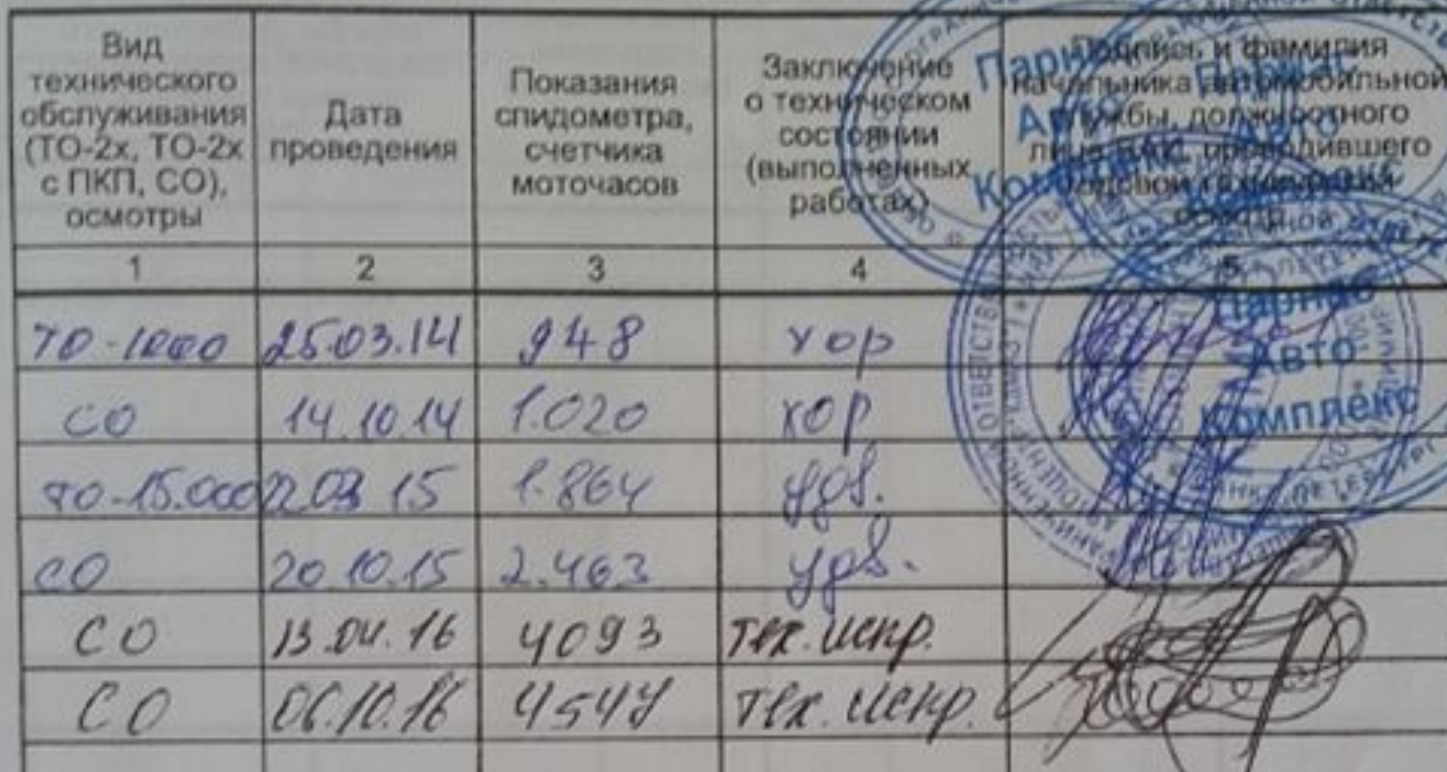 Вид
технического
обслуживания
(ТО-2х, ТО-2х
с ПКП, СО),
осмотры
Дата
проведения
Показания
спидометра,
счетчика
моточасов
Заключение
о техническом
состоянии
(выполненных
работах)
Подпись и фамилия
начальника автомобильной
службы, должностного
лица ВАИ, проводившего
годовой технический
осмотр
1 2 3 4 5
ТО-1000 25.03.14 948 хор
СО 14.10.14 1.020 хор
ТО-15.000 22.03 15 1.864 удв.
СО 20.10.15 2.463 удв.
СО 13.04.16 4093 тех. испр.
СО 06.10.16 4547 тех. испр.
Парнас
Авто
Комплекс
Парнас
Авто
Комплекс
Парнас
Авто
Комплекс